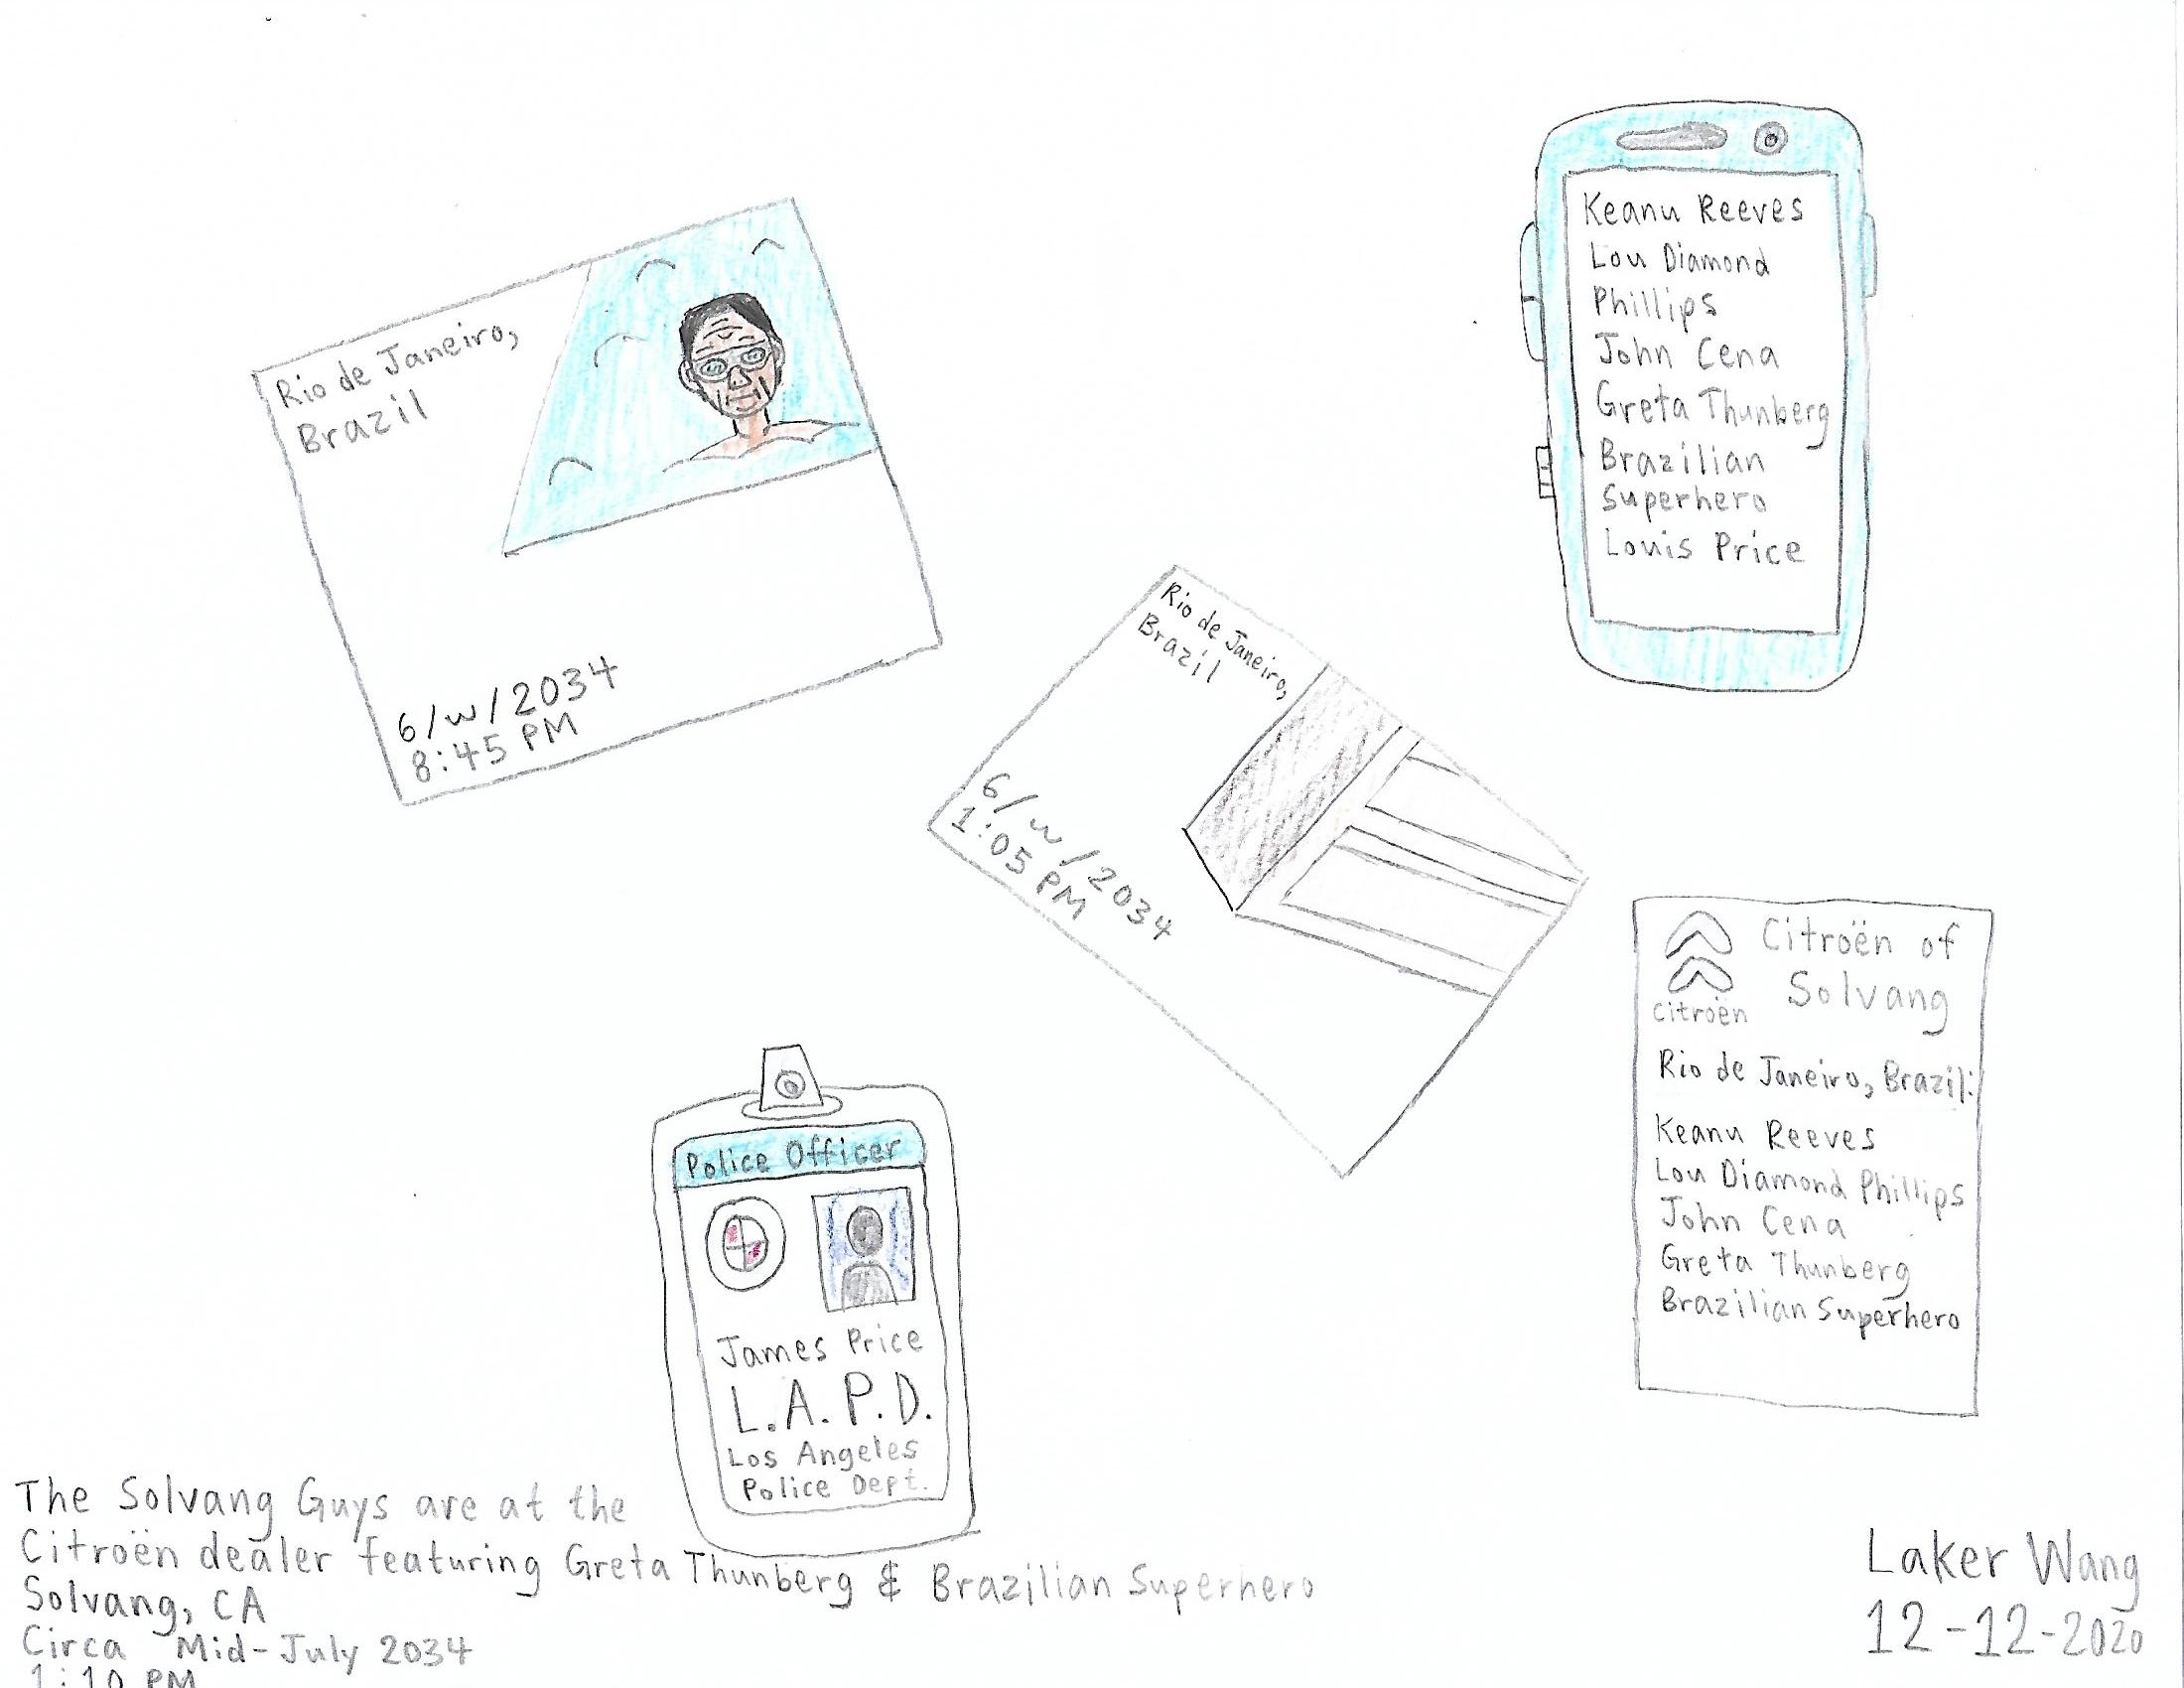 Rio de Janeiro,
Brazil
6/w/2034
8:45 PM
Keanu Reeves
Lou Diamond
Phillips
John Cena
Greta Thunberg
Brazilian
Superhero
Louis Price
Rio de Janeiro,
Brazil
6/w/2034
1:05 PM
Citroën of
Solvang
Citroën
Rio de Janeiro, Brazil:
Keanu Reeves
Lou Diamond Phillips
John Cena
Greta Thunberg
Brazilian Superhero
Police Officer
James Price
L.A.P.D.
Los Angeles
Police Dept.
The Solvang Guys are at the
Citroën dealer featuring Greta Thunberg & Brazilian Superhero
Solvang, CA
Circa Mid-July 2034
1:10 PM
Laker Wang
12-12-2020